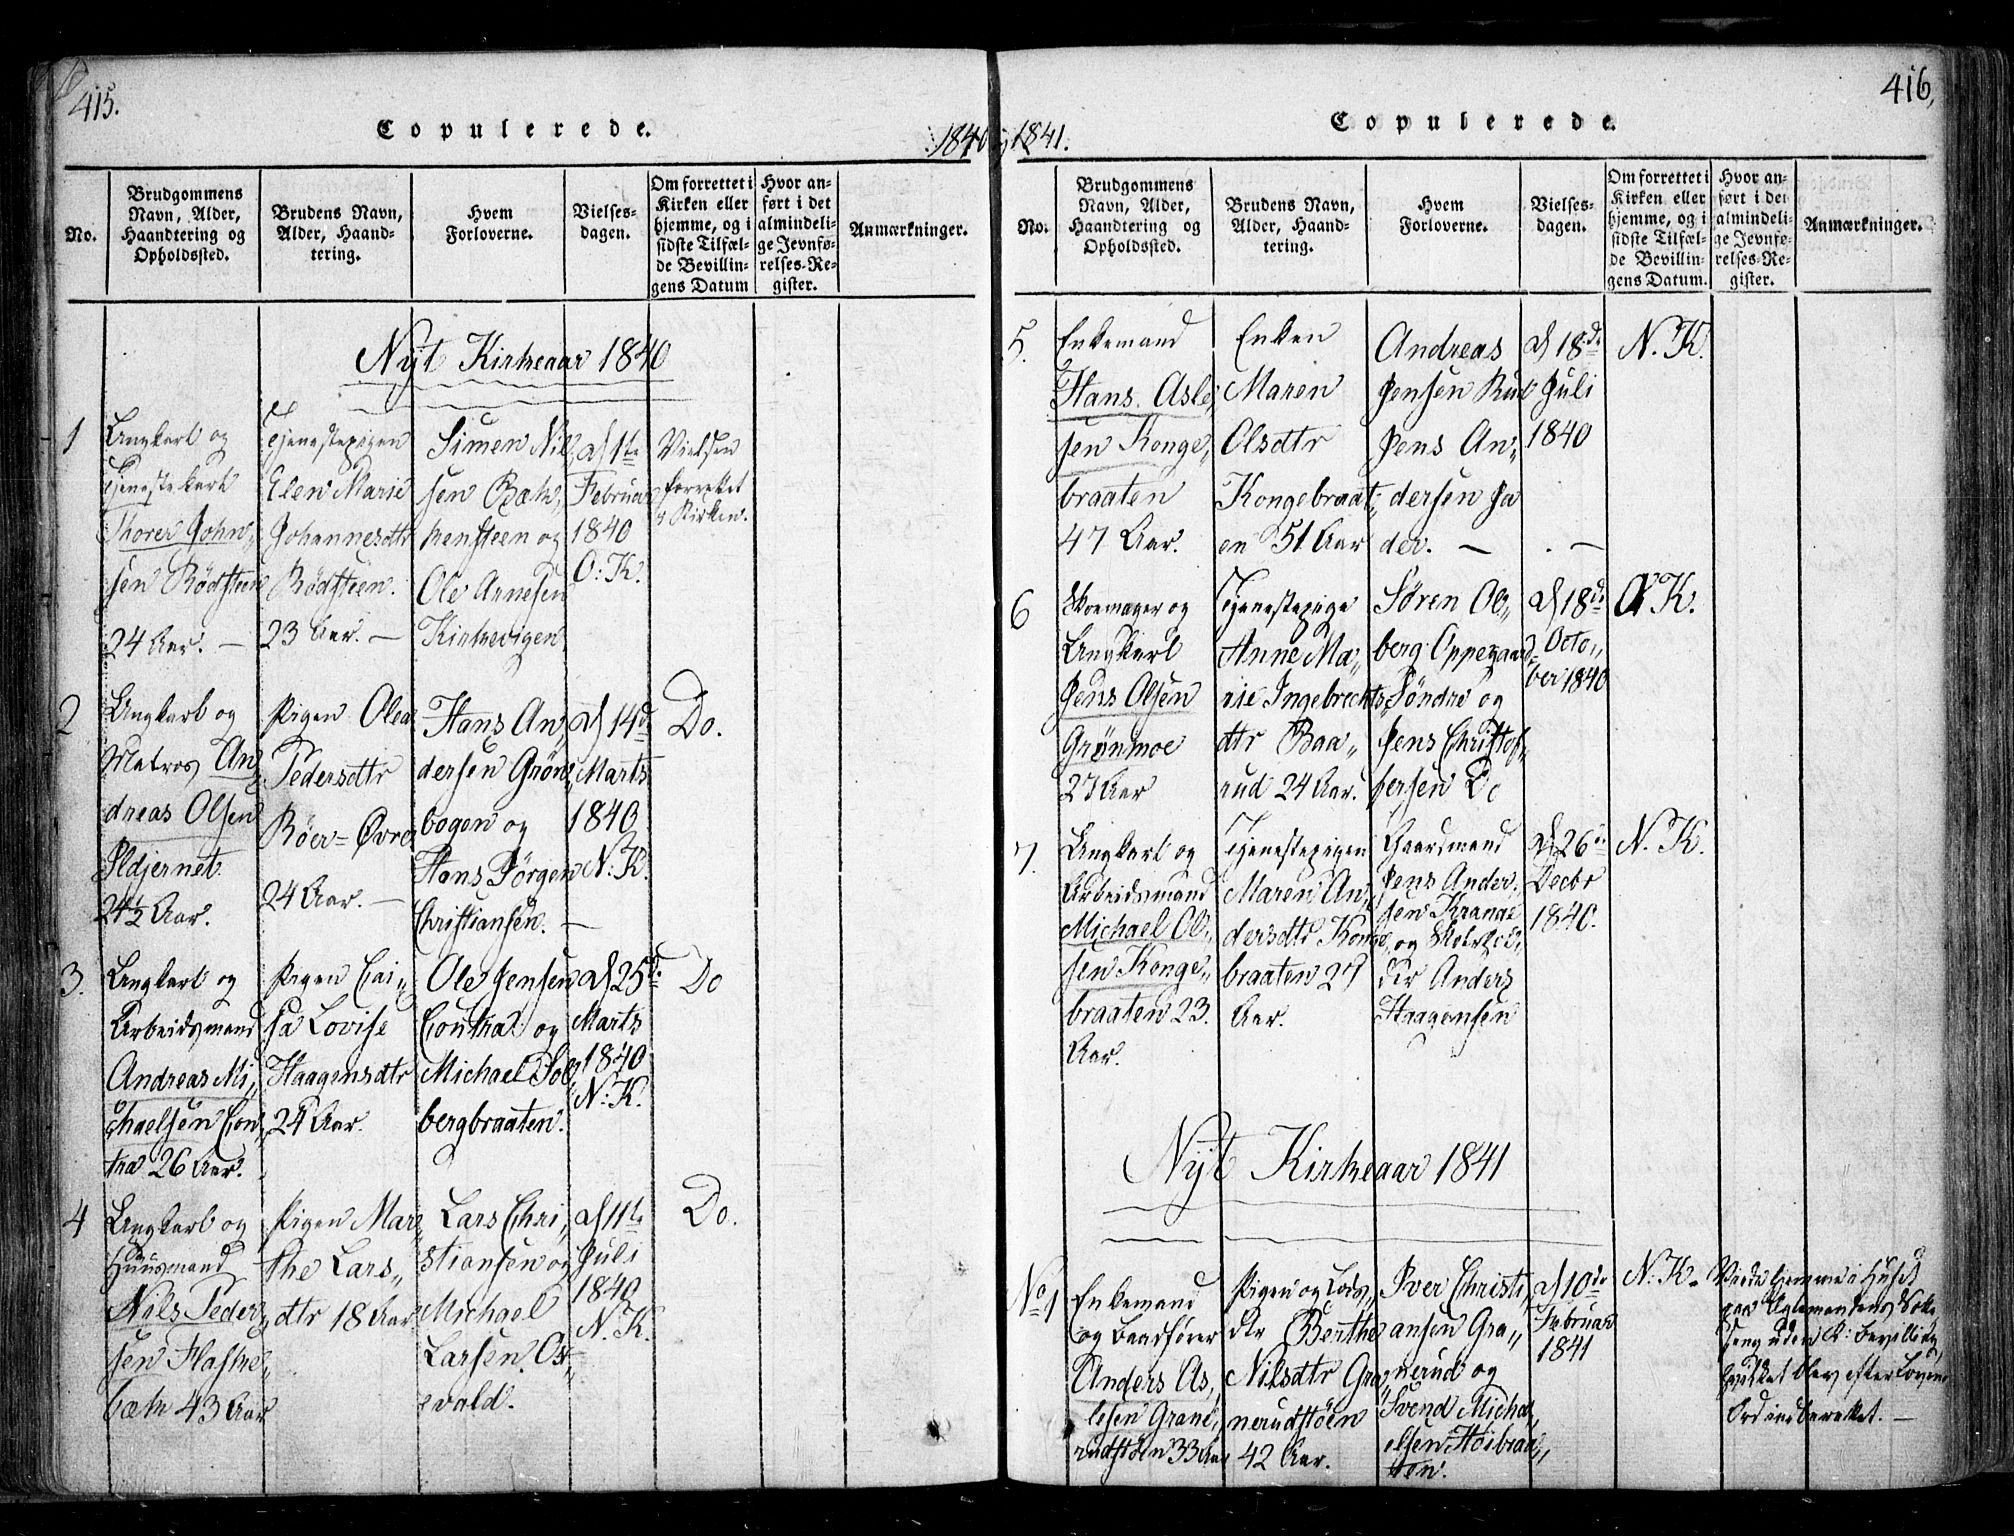 415.
Copulerede.
1840 og 1841.
No.
Brudgommens
Navn, Alder,
Haandtering og
Opholdssted.
Brudens Navn,
Alder, Haand-
tering.
Hvem
Forloverne.
Vielses-
dagen.
Om forrettet i
Kirken eller
hjemme, og i
sidste Tilfæl-
de Bevillin-
gens Datum
Hvor an-
ført i det
almindeli-
ge Jevnfø-
relses-Re-
gister.
Anmærkninger.
Nyt Kirkeaar 1840
1
Ungkarl og
Tjenestekarl
Thorer John„
sen Rødsteen
24 Aar. —
Tjenestepigen
Elen Marie
Johannesdtr
Rødsteen.
23 Aar. —
Simen Nil„
sen Bæk„
kensteen og
Ole Arnesen
Kirkevigen
d 1te
Februar
1840
O: K.
Vielsen
forrettet
i Kirken.
2
Ungkarl og
Matros An„
dreas Olsen
Ildjernet
24½ Aar.
Pigen Olea
Pedersdtr
Røer=Øvre
24 Aar. —
Hans An„
dersen Grøn„
bogen og
Hans Jørgen
Christiansen. —
d 14de
Marts
1840
N: K.
Do.
3.
Ungkarl og
Arbeidsmand
Andreas Mi„
chaelsen Con„
tra 26 Aar.
Pigen Cai„
sa Lovise
Haagensdtr
24 Aar.
Ole Jensen
Contra og
Michael Sol„
bergbraaten.
d 25de
Marts
1840
N: K.
Do
4
Ungkarl og
Huusmand
Nils Peder„
sen Flaske„
bæk 43 Aar
Pigen Mar„
the Lars„
dtr 18 Aar
Lars Chri„
stiansen og
Michael
Larsen Os„
evald.
d 11te
Juli
1840
N. K.
Do.
416,
Copulerede.
No.
Brudgommens
Navn, Alder,
Haandtering og
Opholdssted.
Brudens Navn,
Alder, Haand-
tering.
Hvem
Forloverne.
Vielses-
dagen.
Om forrettet i
Kirken eller
hjemme, og i
sidste Tilfæl-
de Bevillin-
gens Datum.
Hvor an-
ført i det
almindeli-
ge Jevnfø-
relses-Re-
gister.
Anmærkninger.
5.
Enkemand
Hans Asle„
sen Konge„
braaten
47 Aar.
Enken
Maren
Olsdtr
Kongebraat„
en 51 Aar
Andreas
Jensen Rud
Jens An„
dersen Ja
der. —
d 18de
Juli
1840
. —
N. K.
6
Skoemager og
Ungkarl
Jens Olsen
Grønmoe
27 Aar
Tjenestepige
Anne Ma„
rie Ingebrechts„
dtr Baa„
rud 24 Aar.
Søren Ol„
berg Oppegaard
Søndre og
Jens Christof„
fersen Do
d 18de
Octo„
ber 1840
O K.
7.
Ungkarl og
Arbeidsmand
Michael Ol„
sen Konge„
braaten 23.
Aar.
Tjenestepigen
Maren An„
dersdtr Konge„
braaten 27
Aar.
Gaardmand
Jens Ander„
sen Krange
og Skolehol„
der Anders
Haagensen
d 26de
Decbr
1840.
N. K.
Nyt Kirkeaar 1841
No 1
Enkemand
og Baadfører
Anders As„
lesen Grane„
rudstøen 33 Aar
Pigen og Lods„
dtr Berthe
Nilsdtr Gra„
nerudstøen
42 Aar.
Iver Christi„
ansen Gra„
nerud og
Svend Micha„
elsen Høibraa„
ten.
d 10de
Februar
1841
N. K.
Viede hjemme i Huset
uden K: Bevilling,
hvilket blev efter Lovens
Ord indberettet. —